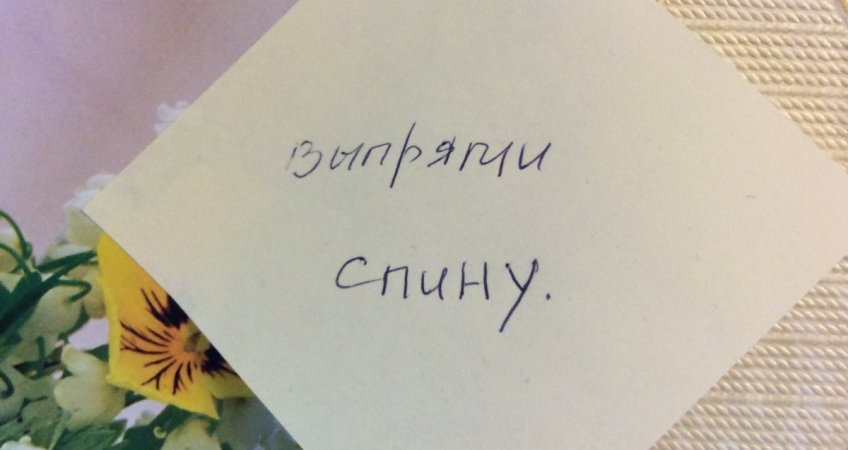 выпрями
спину.